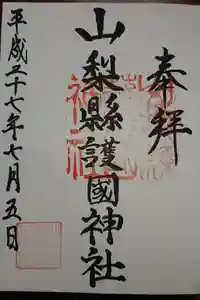 奉拝
山梨縣護國神社
平成二十七年七月五日